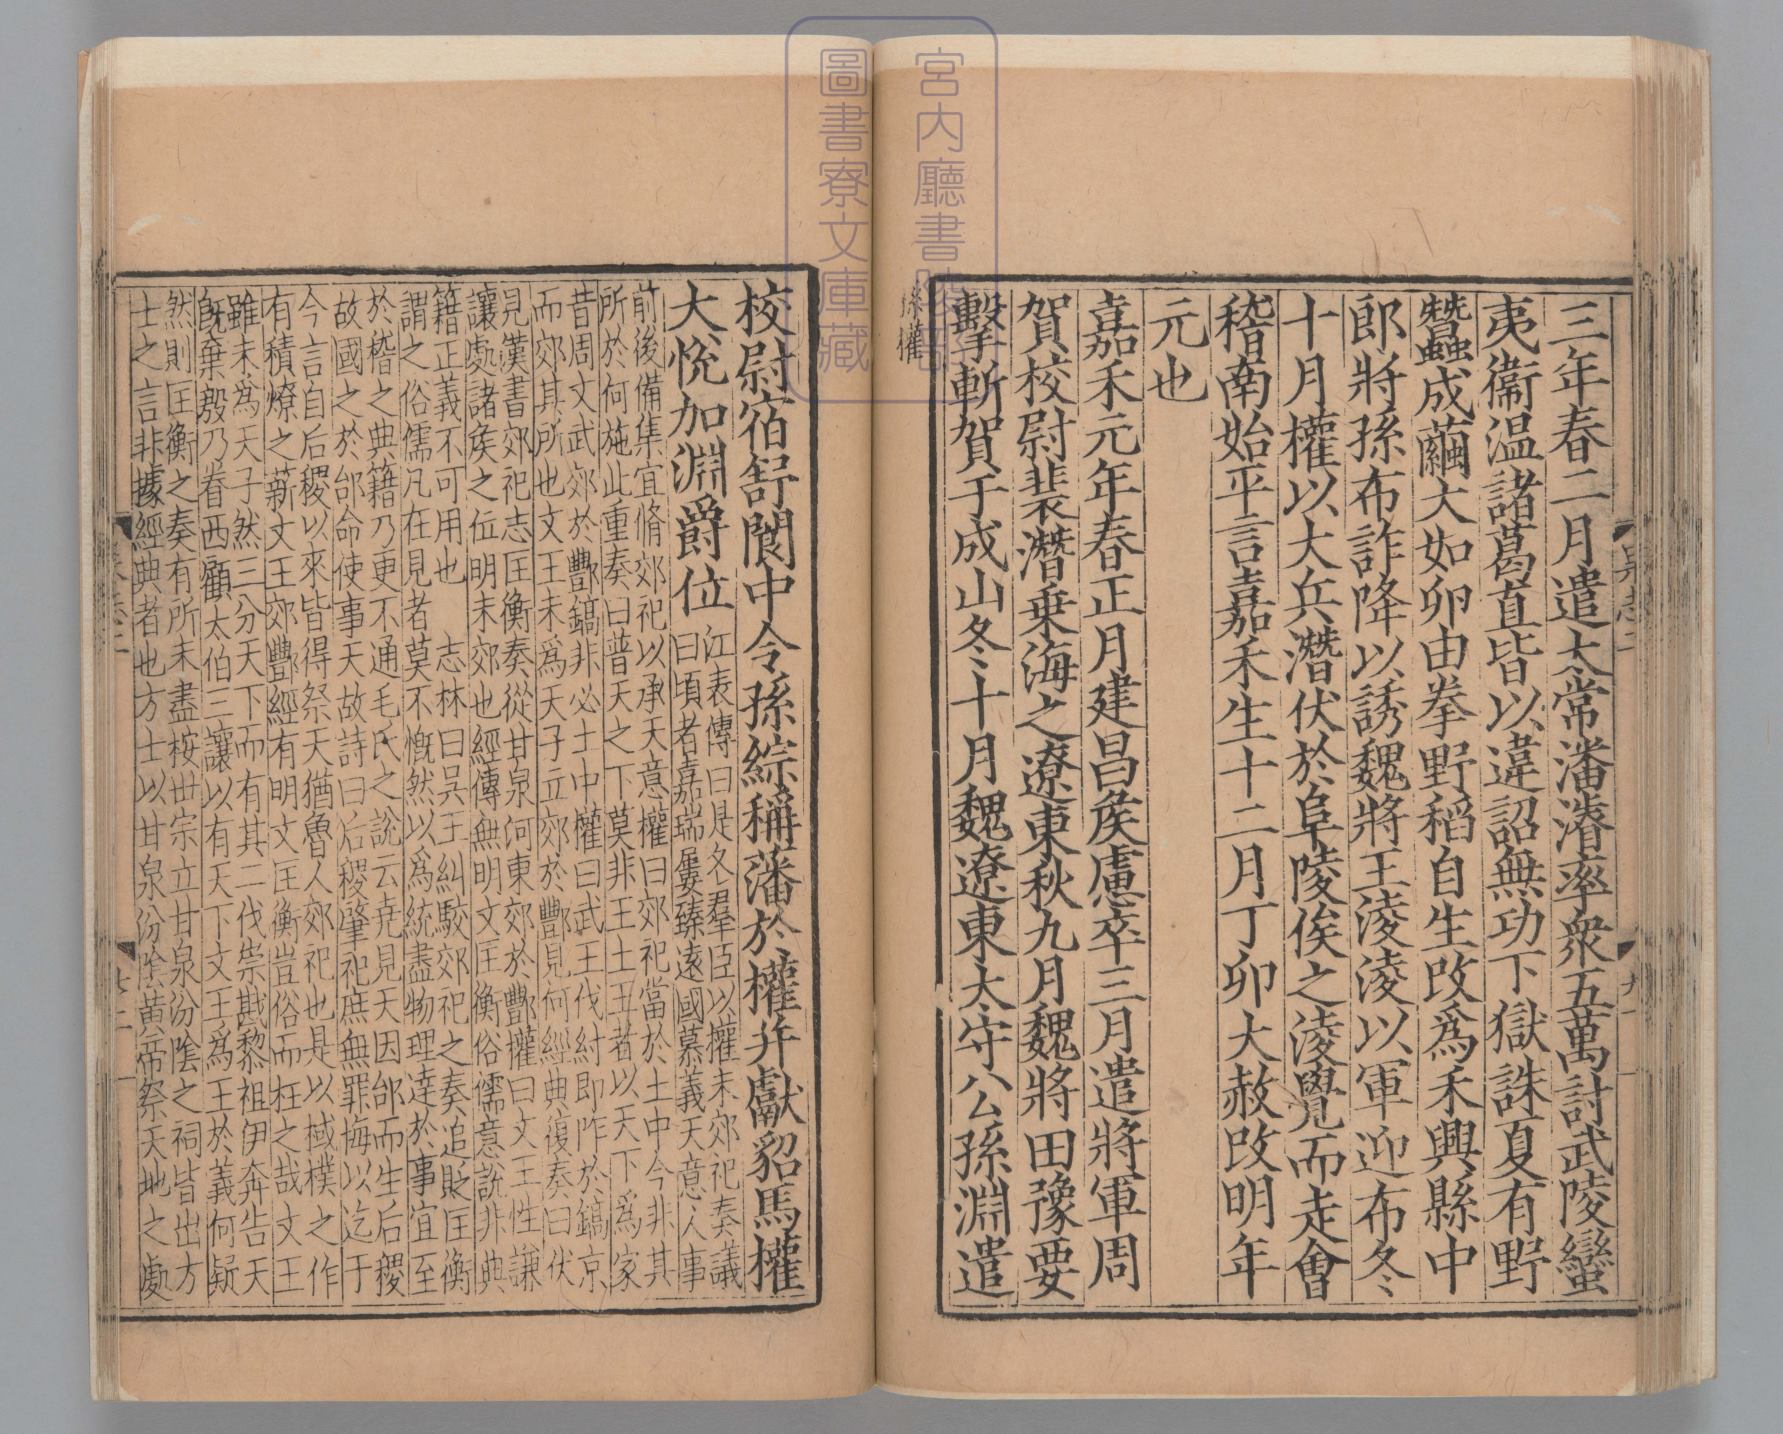 宮内廳書陵部
圖書寮文庫藏
吳志二
三年春二月遣太常潘濬率衆五萬討武陵蠻
夷衞温諸葛直皆以違詔無功下獄誅夏有野
蠶成繭大如卵由拳野稻自生改爲禾興縣中
郎將孫布詐降以誘魏將王淩淩以軍迎布冬
十月權以大兵潛伏於阜陵俟之淩覺而走會
稽南始平言嘉禾生十二月丁卯大赦改明年
元也
嘉禾元年春正月建昌矦慮卒三月遣將軍周
賀校尉裴潛乗海之遼東秋九月魏將田豫要
擊斬賀于成山冬十月魏遼東太守公孫淵遣
孫權
校尉宿舒閬中令孫綜稱藩於權并獻貂馬權
大恱加淵爵位
江表傳曰是冬羣臣以權未郊祀奏議
曰頃者嘉瑞屢臻遠國慕義天意人事
前後備集宜脩郊祀以承天意權曰郊祀當於土中今非其
所於何施此重奏曰普天之下莫非王土王者以天下爲家
昔周文武郊於酆鎬非必土中權曰武王伐紂即阼於鎬京
而郊其所也文王未爲天子立郊於酆見何經典復奏曰伏
見漢書郊祀志匡衡奏從甘泉河東郊於酆權曰文王性謙
讓處諸矦之位明未郊也經傳無明文匡衡俗儒意說非典
籍正義不可用也　志林曰吳王糾駮郊祀之奏追貶匡衡
謂之俗儒凡在見者莫不慨然以爲統盡物理達於事宜至
於稽之典籍乃更不通毛氏之說云堯見天因邰而生后稷
故國之於邰命使事天故詩曰后稷肇祀庶無罪悔以迄于
今言自后稷以來皆得祭天猶魯人郊祀也是以棫樸之作
有積燎之薪文王郊酆經有明文匡衡豈俗而枉之哉文王
雖未爲天子然三分天下而有其二伐崇戡黎祖伊奔告天
旣棄殷乃眷西顧太伯三讓以有天下文王爲王於義何疑
然則匡衡之奏有所未盡桉世宗立甘泉汾陰之祠皆出方
士之言非據經典者也方士以甘泉汾陰黃帝祭天地之處